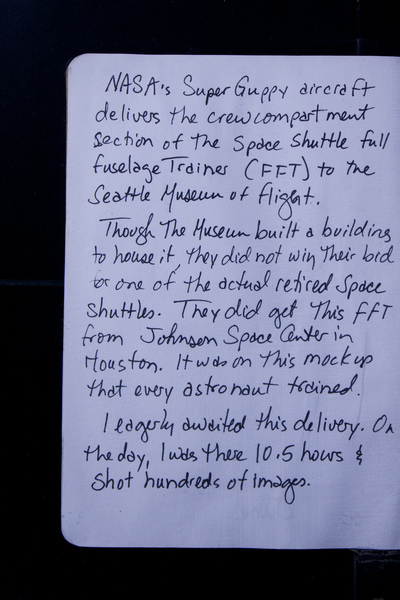 NASA's Super Guppy aircraft
delivers the crew compartment
section of the Space Shuttle full
fuselage Trainer (FFT) to the
Seattle Museum of flight.
Though The Museum built a building
to house it, they did not win their bid
for one of the actual retired Space
Shuttles. They did get this FFT
from Johnson Space Center in
Houston. It was on this mockup
that every astronaut trained.
I eagerly awaited this delivery. On
the day, I was there 10.5 hours &
shot hundreds of images.